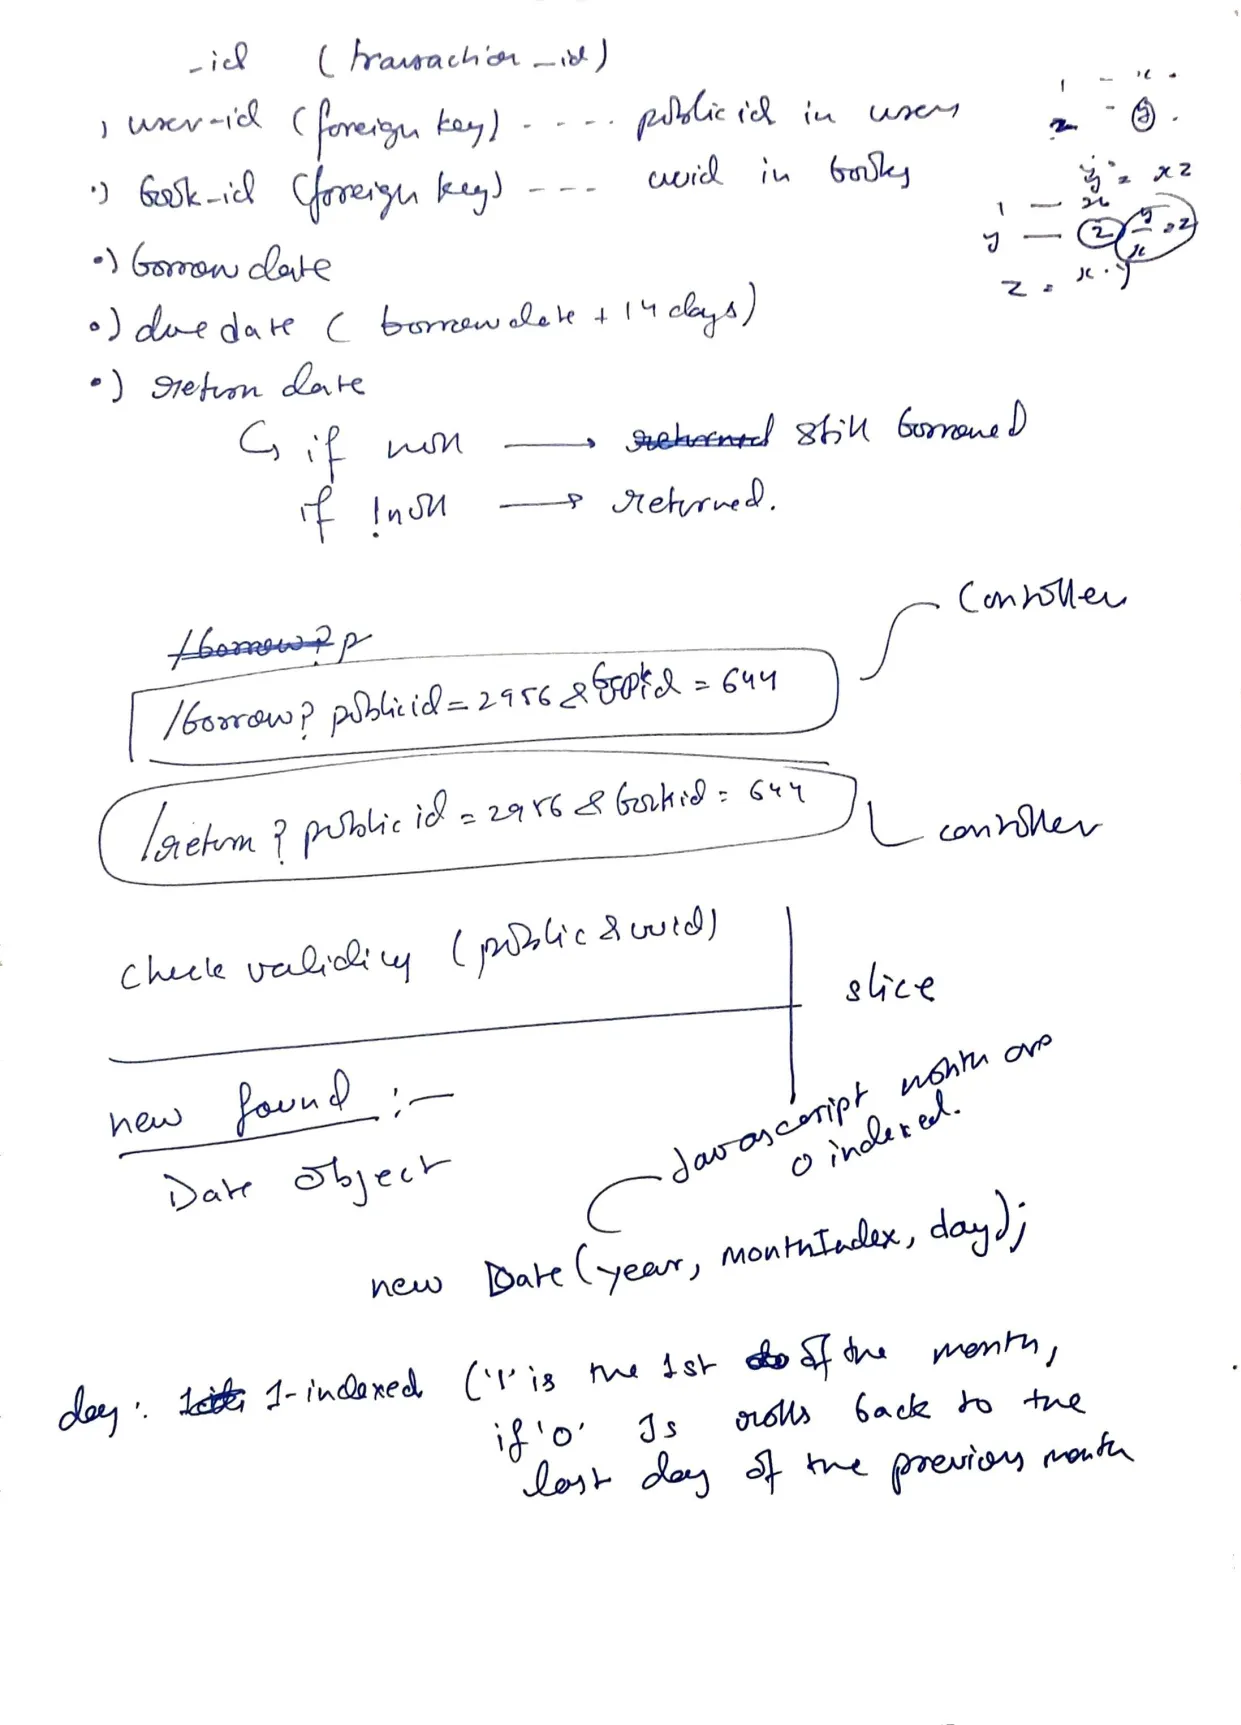 _id (transaction_id)
•) user-id (foreign key) .... public id in users
•) book-id (foreign key) --- uuid in books
•) borrow date
•) due date ( borrow date + 14 days)
•) return date
↳ if null → returned still borrowed
if !null → returned.
1 - x.
z - y.
y = xz
1 — x
y — z y/x = z
z = x.y
/borrow? p
Controller
/borrow? public id = 2956 & bookid = 644
/return? public id = 2956 & bookid = 644
controller
check validity (public & uuid)
slice
new found :—
Javascript month are
0 indexed.
Date Object
new Date(year, monthIndex, day);
day: 1-indexed ('1' is the 1st of the month,
if '0' Js rolls back to the
last day of the previous month